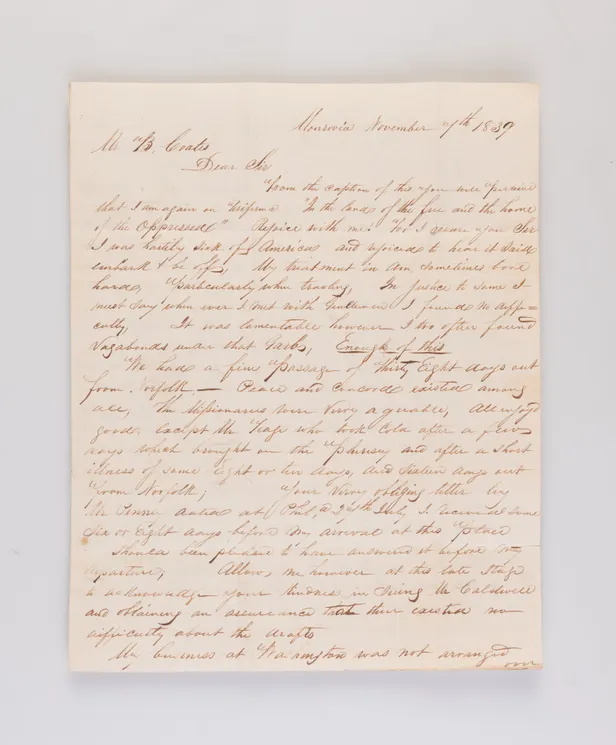 Monrovia November 7th 1839
Mr B. Coates
Dear Sir
From the caption of this you will peruive
that I am again on "In the land of the free and the home
of the Oppressed" Rejoice with me! For I assure you Sir
I was hartily sick of America and rejoiced to hear it said
embark & be off, My treatment in Am. sometimes bore
hard, Particularly when traveling, In justice to some it
must say when ever I met with Gentlemen I found no diffi=
culty, It was lamentable however I too often found
Vagabonds under that Garb, Enough of this
We had a fine Passage of thirty Eight days out
from Norfolk, — Peace and Concord existed among
all, The Missionaries were Verry agreable, All enjoy'd
good except Mr who took Cold after a few
days which brought on the Plurisy and after a short
illness of some eight or ten days, died sixteen days out
from Norfolk; Your Verry obliging letter by
Mr Pinney dated at Phil,a July, I received some
six or eight days before my arrival at this Place
Should been pleased to have answered it before my
departure, Allow, me however at this late Stage
to acknowledge your kindness in Seeing Mr Caldwell
and obtaining an assureance that their existed no
difficulty about the drafts
My buisness at Washington was not arranged
over